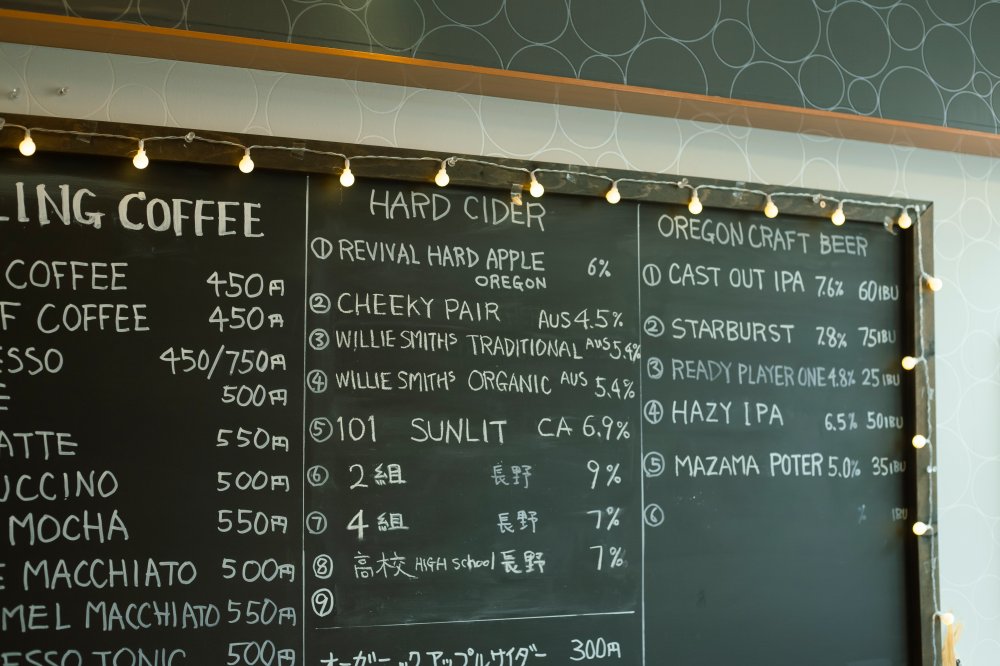 LING COFFEE
COFFEE 450円
F COFFEE 450円
ESSO 450/750円
E 500円
ATTE 550円
UCCINO 500円
MOCHA 550円
E MACCHIATO 500円
MEL MACCHIATO 550円
ESSO TONIC 500円
HARD CIDER
① REVIVAL HARD APPLE 6%
OREGON
② CHEEKY PAIR AUS 4.5%
③ WILLIE SMITHS TRADITIONAL AUS 5.4%
④ WILLIE SMITHS ORGANIC AUS 5.4%
⑤ 101 SUNLIT CA 6.9%
⑥ 2組 長野 9%
⑦ 4組 長野 7%
⑧ 高校 HIGH School 長野 7%
⑨
オーガニックアップルサイダー 300円
OREGON CRAFT BEER
① CAST OUT IPA 7.6% 60IBU
② STARBURST 7.8% 75IBU
③ READY PLAYER ONE 4.8% 25IBU
④ HAZY IPA 6.5% 50IBU
⑤ MAZAMA POTER 5.0% 35IBU
⑥ % IBU